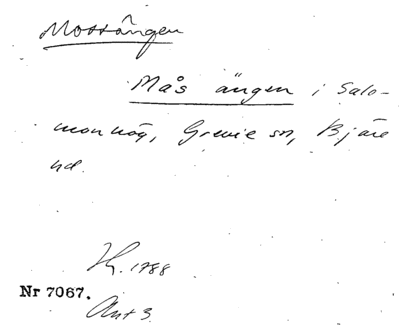 Mossängen
Mås ängen i Salo-
monhög, Grevie sn, Bjäre
hd.
Hg. 1788
Nr 7067.
Akt 3